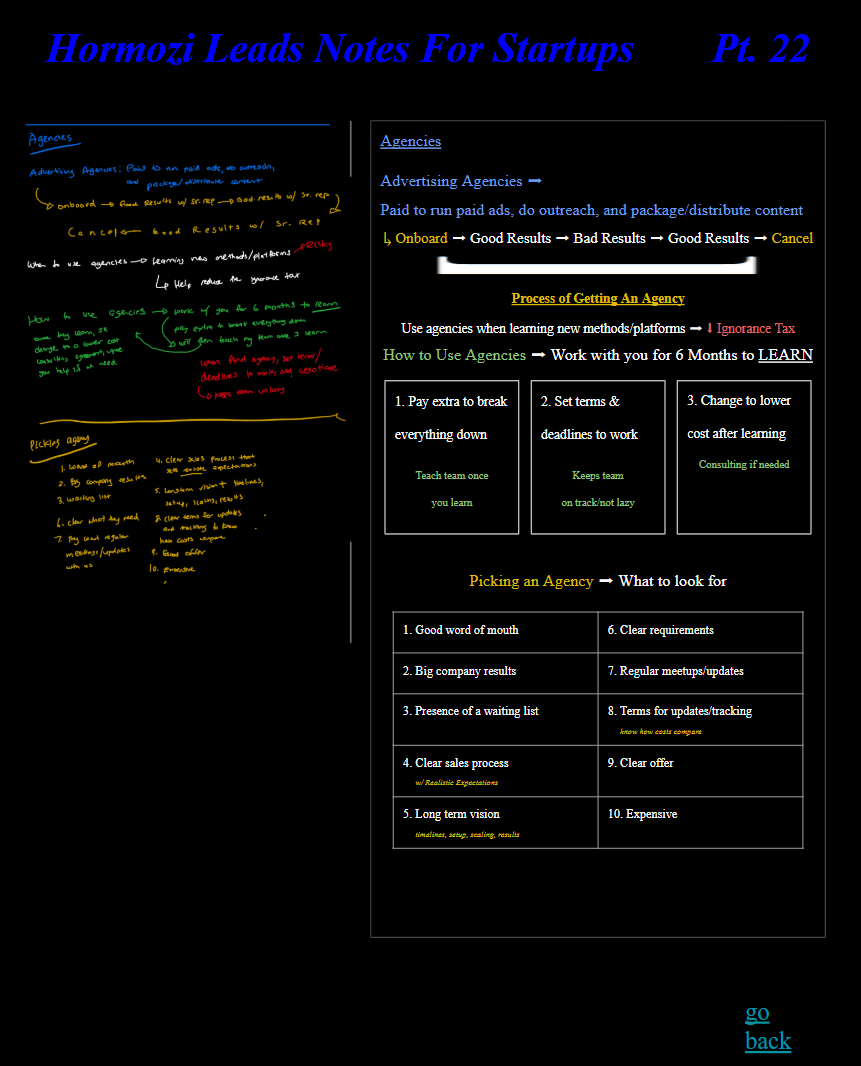 Hormozi Leads Notes For Startups Pt. 22
Agencies
Advertising Agencies: Paid to run paid ads, do outreach,
and package/distribute content
onboard → Good Results w/ Sr. rep → Bad results w/ Sr. rep
Cancel ← Good Results w/ Sr. Rep
When to use agencies → Learning new methods/platforms → Risky
↳ Help reduce the ignorance tax
How to use agencies → work w/ you for 6 months to learn
pay extra to break everything down
will then teach my team once I learn
once they learn, I'll
change to a lower cost
consulting agreement, where
you help is if need
when find agency, set terms/
deadlines to work, and negotiate
↳ keeps team unlazy
Picking agency
1. Word of mouth
2. Big company results
3. waiting list
4. Clear sales process that
sets realistic expectations
5. Longterm vision + timelines,
setup, scaling, results
6. clear what they need
7. They want regular
meetings/updates
with us
8. clear terms for updates
and tracking to know
how costs compare
9. Good offer
10. Expensive
Agencies
Advertising Agencies ➞
Paid to run paid ads, do outreach, and package/distribute content
↳ Onboard ➞ Good Results ➞ Bad Results ➞ Good Results ➞ Cancel
Process of Getting An Agency
Use agencies when learning new methods/platforms ➞ ⬇ Ignorance Tax
How to Use Agencies ➞ Work with you for 6 Months to LEARN
1. Pay extra to break
everything down
Teach team once
you learn
2. Set terms &
deadlines to work
Keeps team
on track/not lazy
3. Change to lower
cost after learning
Consulting if needed
Picking an Agency ➞ What to look for
1. Good word of mouth
2. Big company results
3. Presence of a waiting list
4. Clear sales process
w/ Realistic Expectations
5. Long term vision
timelines, setup, scaling, results
6. Clear requirements
7. Regular meetups/updates
8. Terms for updates/tracking
know how costs compare
9. Clear offer
10. Expensive
go
back